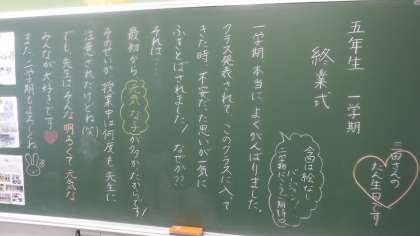 五年生 一学期
終業式
二田さんの
たん生日です
今回は絵なし
一学期 本当に、よくがんばりました。
クラス発表されて、このクラスに入って
きた時、不安だった思いが一気に
ふきとばされました!なぜか??
それは…
最初から元気な子が多かったからです!
そのせいか、授業中は何度も先生に
注意されたけどね(笑)
でも、先生はそんな明るくて元気な
みんなが大好きです♥
また、二学期もよろしくね